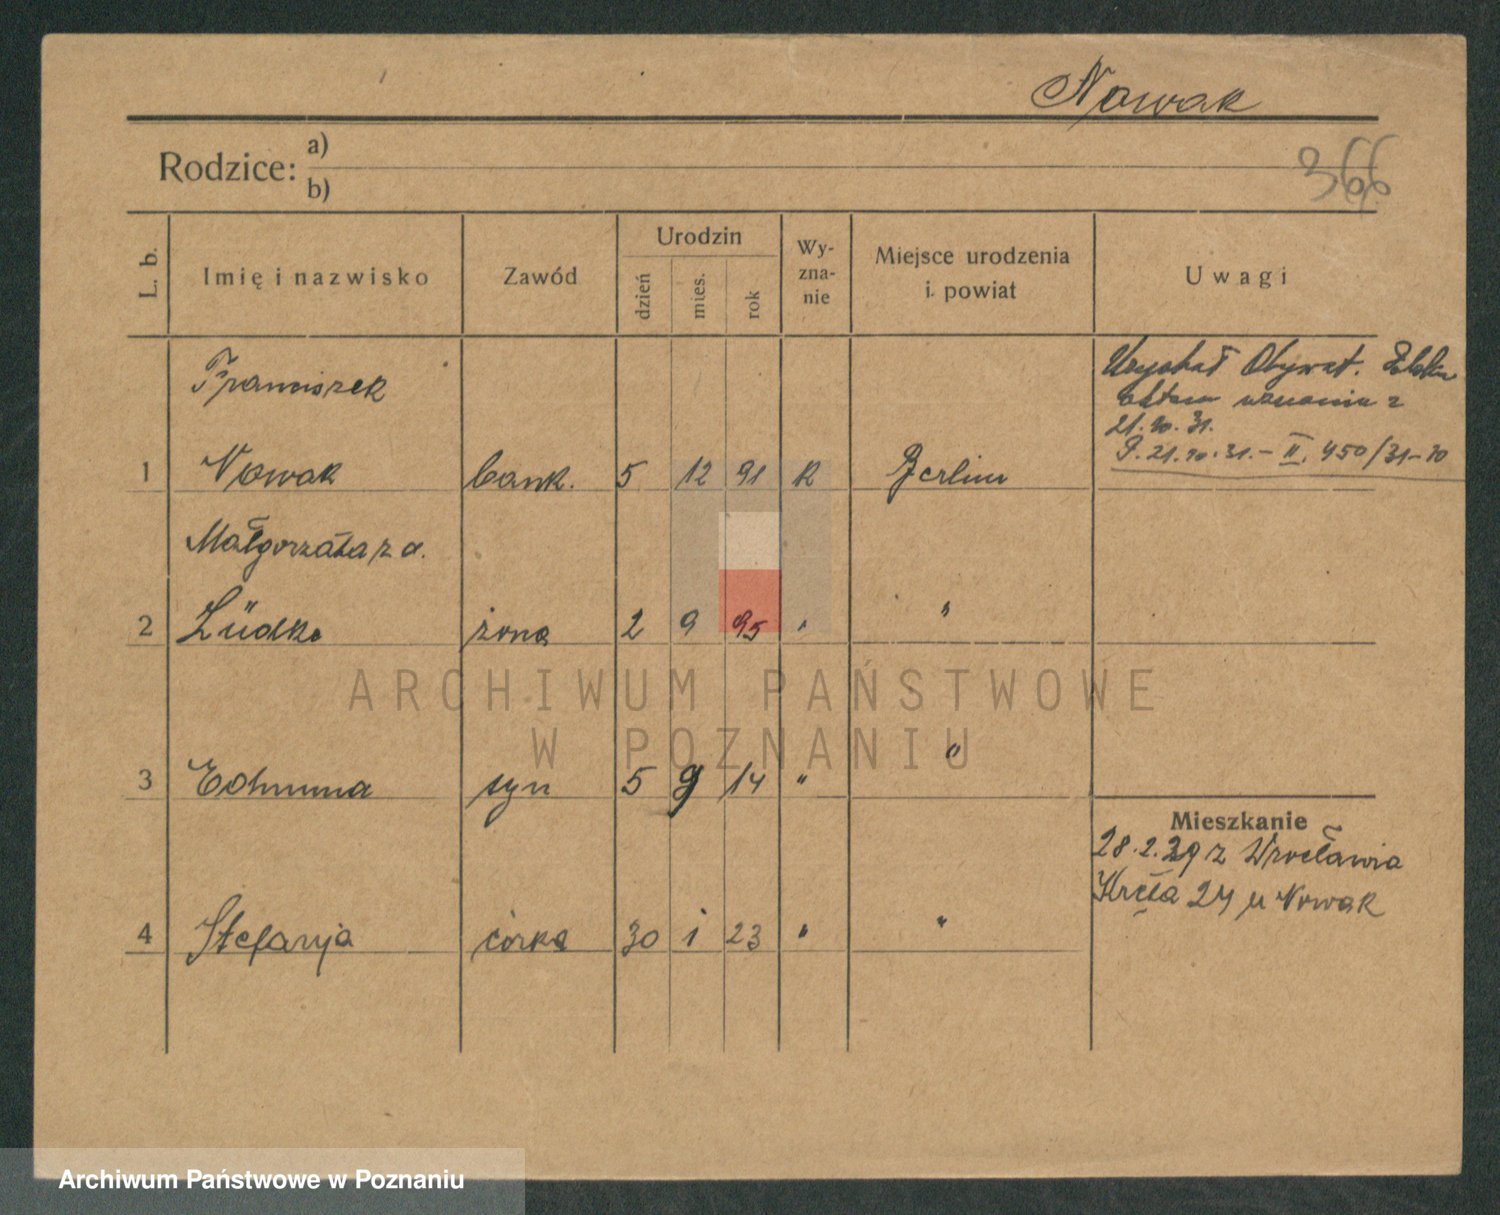 Nowak
Rodzice: a)
b)
366
L. b.
Imię i nazwisko
Zawód
Urodzin
dzień
mies.
rok
Wy-
zna-
nie
Miejsce urodzenia
i powiat
Uwagi
Uzyskał Obywat.
aktem uznania z
21.10.31.
P. 21.10.31.– II. 450/31–10
Franciszek
1 Nowak bank. 5 12 91 R Berlin
Małgorzata z d.
2 Lüdke żona 2 9 95 " "
3 Edmund syn 5 9 14 " "
Mieszkanie
28.2.29 z Wrocławia
Kręta 24 u Nowak
4 Stefanja córka 30 1 23 " "
ARCHIWUM PAŃSTWOWE
W POZNANIU
Archiwum Państwowe w Poznaniu